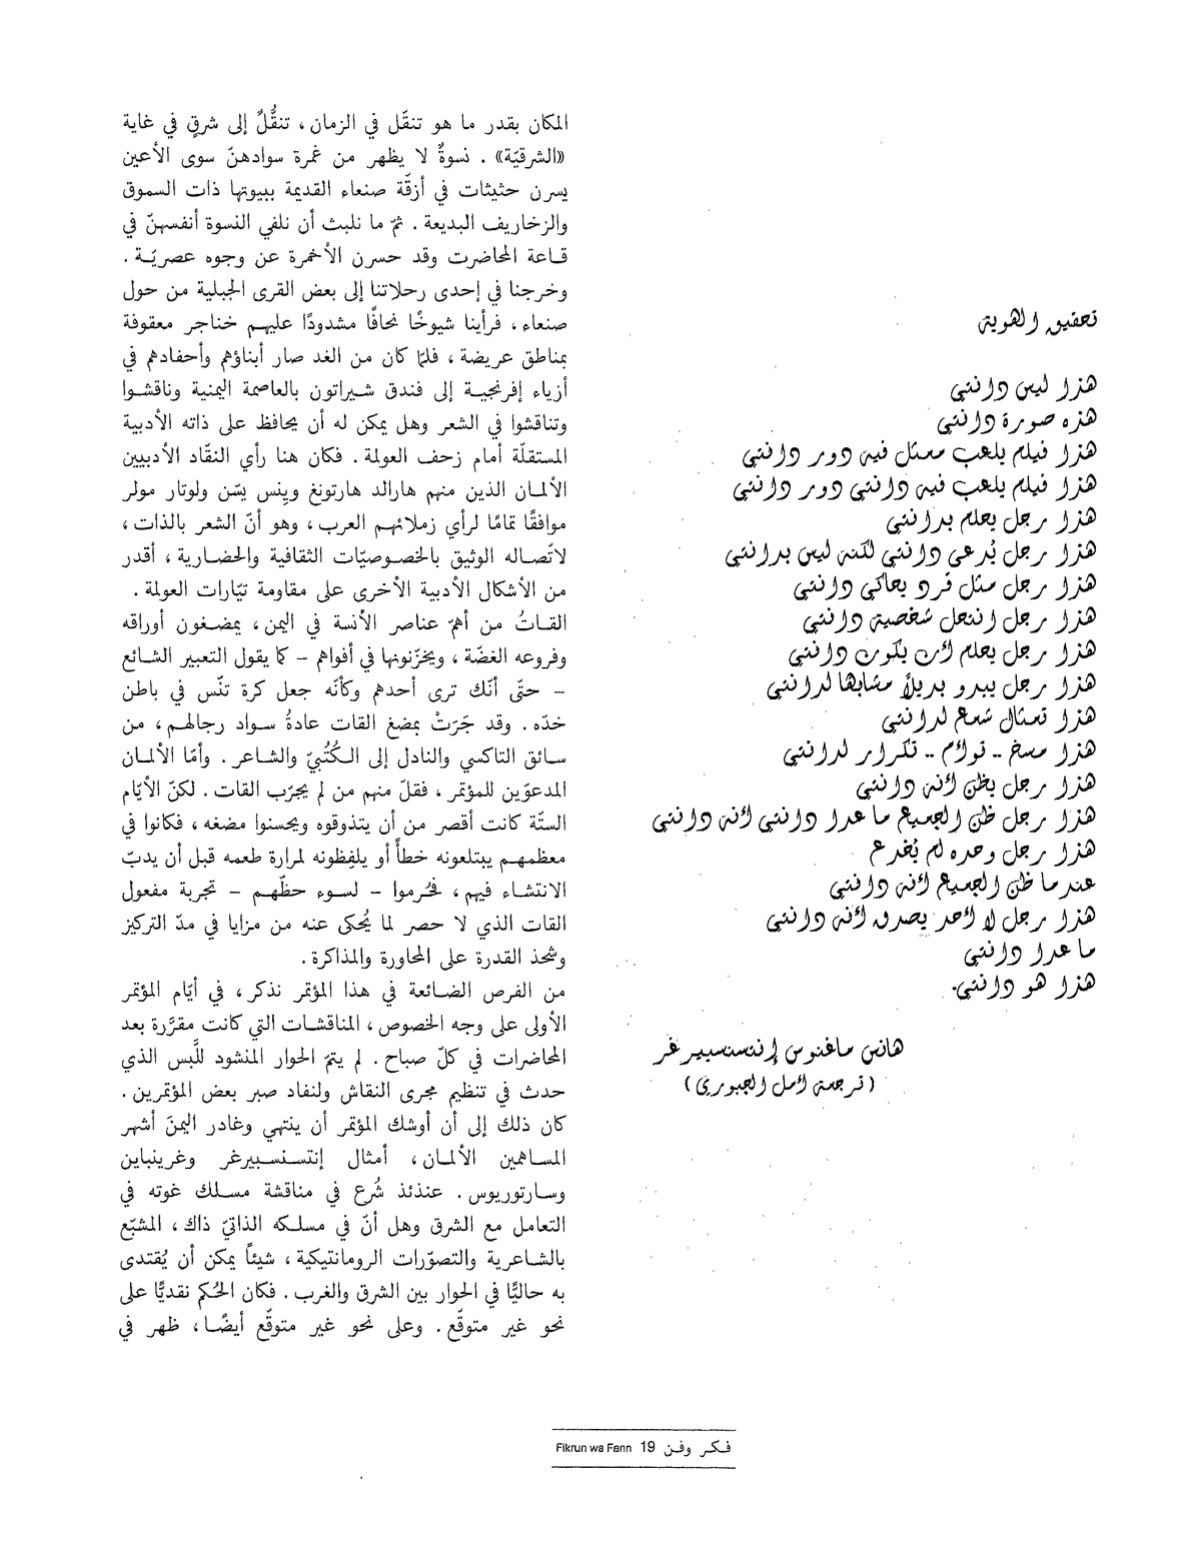 تحقيق الهوية
هذا ليس دانتي
هذه صورة دانتي
هذا فيلم يلعب ممثل فيه دور دانتي
هذا فيلم يلعب فيه دانتي دور دانتي
هذا رجل يحلم بدانتي
هذا رجل يُدعى دانتي لكنه ليس بدانتي
هذا رجل مثل قرد يحاكي دانتي
هذا رجل انتحل شخصية دانتي
هذا رجل يحلم أن يكون دانتي
هذا رجل يبدو بديلاً مشابها لدانتي
هذا تمثال شمع لدانتي
هذا مسخ .. توأم .. تكرار لدانتي
هذا رجل يظن أنه دانتي
هذا رجل ظن الجميع ما عدا دانتي أنه دانتي
هذا رجل وحده لم يُخدع
عندما ظن الجميع أنه دانتي
هذا رجل لا أحد يصدق أنه دانتي
ما عدا دانتي
هذا هو دانتي.
هانس ماغنوس إنتسنسبيرغر
(ترجمة أمل الجبوري)
المكان بقدر ما هو تنقّل في الزمان، تنقُّلٌ إلى شرقٍ في غاية
«الشرقيّة». نسوةٌ لا يظهر من غمرة سوادهنّ سوى الأعين
يسرن حثيثات في أزقّة صنعاء القديمة ببيوتها ذات السموق
والزخاريف البديعة. ثمّ ما نلبث أن نلفي النسوة أنفسهنّ في
قاعة المحاضرت وقد حسرن الأخمرة عن وجوه عصريّة.
وخرجنا في إحدى رحلاتنا إلى بعض القرى الجبلية من حول
صنعاء، فرأينا شيوخًا نحافًا مشدودًا عليهم خناجر معقوفة
بمناطق عريضة، فلمّا كان من الغد صار أبناؤهم وأحفادهم في
أزياء إفرنجية إلى فندق شيراتون بالعاصمة اليمنية وناقشوا
وتناقشوا في الشعر وهل يمكن له أن يحافظ على ذاته الأدبية
المستقلّة أمام زحف العولمة. فكان هنا رأي النقّاد الأدبيين
الألمان الذين منهم هارالد هارتونغ ويِنس يسّن ولوتار مولر
موافقًا تمامًا لرأي زملائهم العرب، وهو أنّ الشعر بالذات،
لاتّصاله الوثيق بالخصوصيّات الثقافية والحضارية، أقدر
من الأشكال الأدبية الأخرى على مقاومة تيّارات العولمة.
القاتُ من أهمّ عناصر الأنسة في اليمن، يمضغون أوراقه
وفروعه الغضّة، ويخزّنونها في أفواهم – كما يقول التعبير الشائع
– حتّى أنّك ترى أحدهم وكأنّه جعل كرة تنّس في باطن
خدّه. وقد جَرَتْ بمضغ القات عادةُ سواد رجالهم، من
سائق التاكسي والنادل إلى الكُتُبيّ والشاعر. وأمّا الألمان
المدعوّين للمؤتمر، فقلّ منهم من لم يجرّب القات. لكنّ الأيّام
الستّة كانت أقصر من أن يتذوقوه ويحسنوا مضغه، فكانوا في
معظمهم يبتلعونه خطأً أو يلفِظونه لمرارة طعمه قبل أن يدبّ
الانتشاء فيهم، فحُرموا – لسوء حظّهم – تجربة مفعول
القات الذي لا حصر لما يُحكى عنه من مزايا في مدّ التركيز
وشحذ القدرة على المحاورة والمذاكرة.
من الفرص الضائعة في هذا المؤتمر نذكر، في أيّام المؤتمر
الأولى على وجه الخصوص، المناقشات التي كانت مقرَّرة بعد
المحاضرات في كلّ صباح. لم يتمّ الحوار المنشود للَّبس الذي
حدث في تنظيم مجرى النقاش ولنفاد صبر بعض المؤتمرين.
كان ذلك إلى أن أوشك المؤتمر أن ينتهي وغادر اليمنَ أشهر
المساهمين الألمان، أمثال إنتسنسبيرغر وغرينباين
وسارتوريوس. عندئذ شُرع في مناقشة مسلك غوته في
التعامل مع الشرق وهل أنّ في مسلكه الذاتيّ ذاك، المشبّع
بالشاعرية والتصوّرات الرومانتيكية، شيئاً يمكن أن يُقتدى
به حاليًّا في الحوار بين الشرق والغرب. فكان الحُكم نقديًّا على
نحو غير متوقّع. وعلى نحو غير متوقّع أيضًا، ظهر في
فكر وفن 19 Fikrun wa Fann